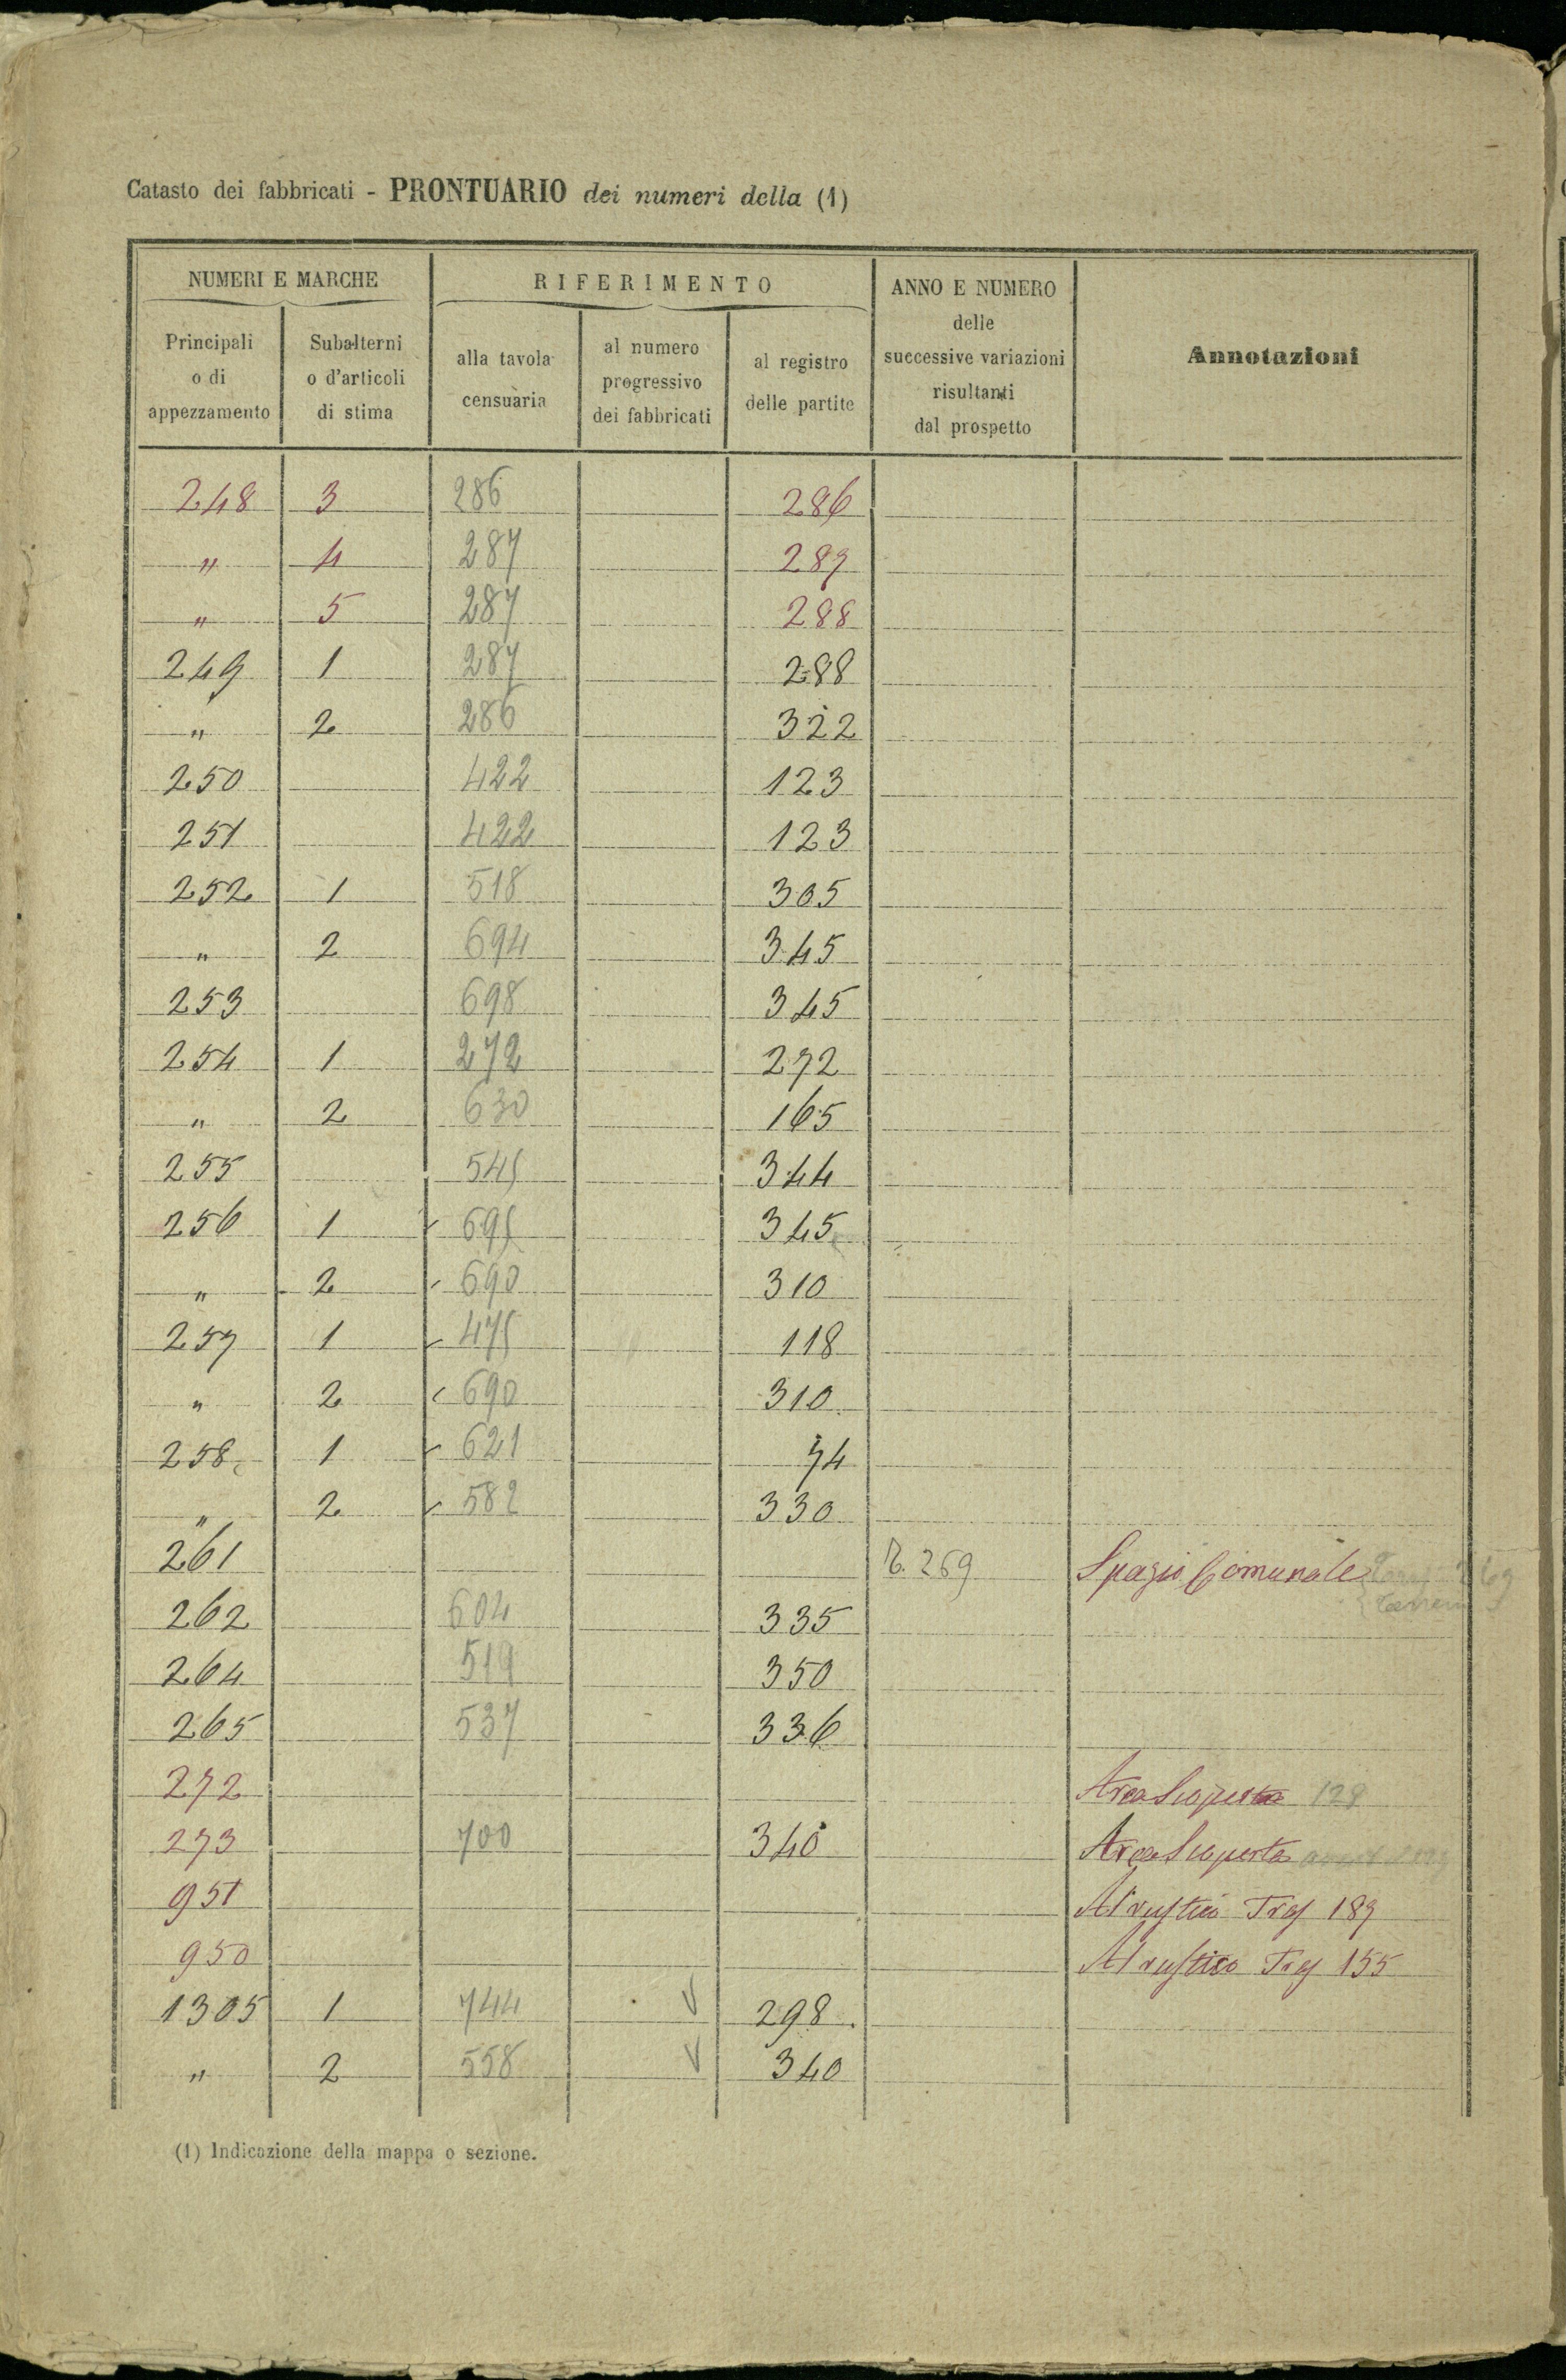 Catasto dei fabbricati - PRONTUARIO dei numeri della (1)
NUMERI E MARCHE
RIFERIMENTO
ANNO E NUMERO
delle
successive variazioni
risultanti
dal prospetto
Annotazioni
Principali
o di
appezzamento
Subalterni
o d'articoli
di stima
alla tavola
censuaria
al numero
progressivo
dei fabbricati
al registro
delle partite
248 3 286 286
" 4 287 287
" 5 287 288
249 1 287 288
" 2 286 322
250 422 123
251 422 123
252 1 518 305
" 2 694 345
253 698 345
254 1 272 272
" 2 630 165
255 545 344
256 1 695 345
" 2 690 310
257 1 475 118
" 2 690 310
258 1 621 74
" 2 582 330
261 269 Spazio Comunale
262 604 335
264 519 350
265 537 336
272 Area Scoperta 128
273 700 340 Area Scoperta
951 Al rustico Traf 187
950 Al rustico Traf 155
1305 1 744 V 298
" 2 558 V 340
(1) Indicazione della mappa o sezione.